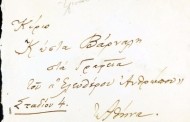 Κύριο
Κώστα Βάρναλη
στὰ Γραφεῖα
τοῦ "Ἐλευθέρου Ἀνθρώπου"
Σταδίου 4.
Ἀθήνα